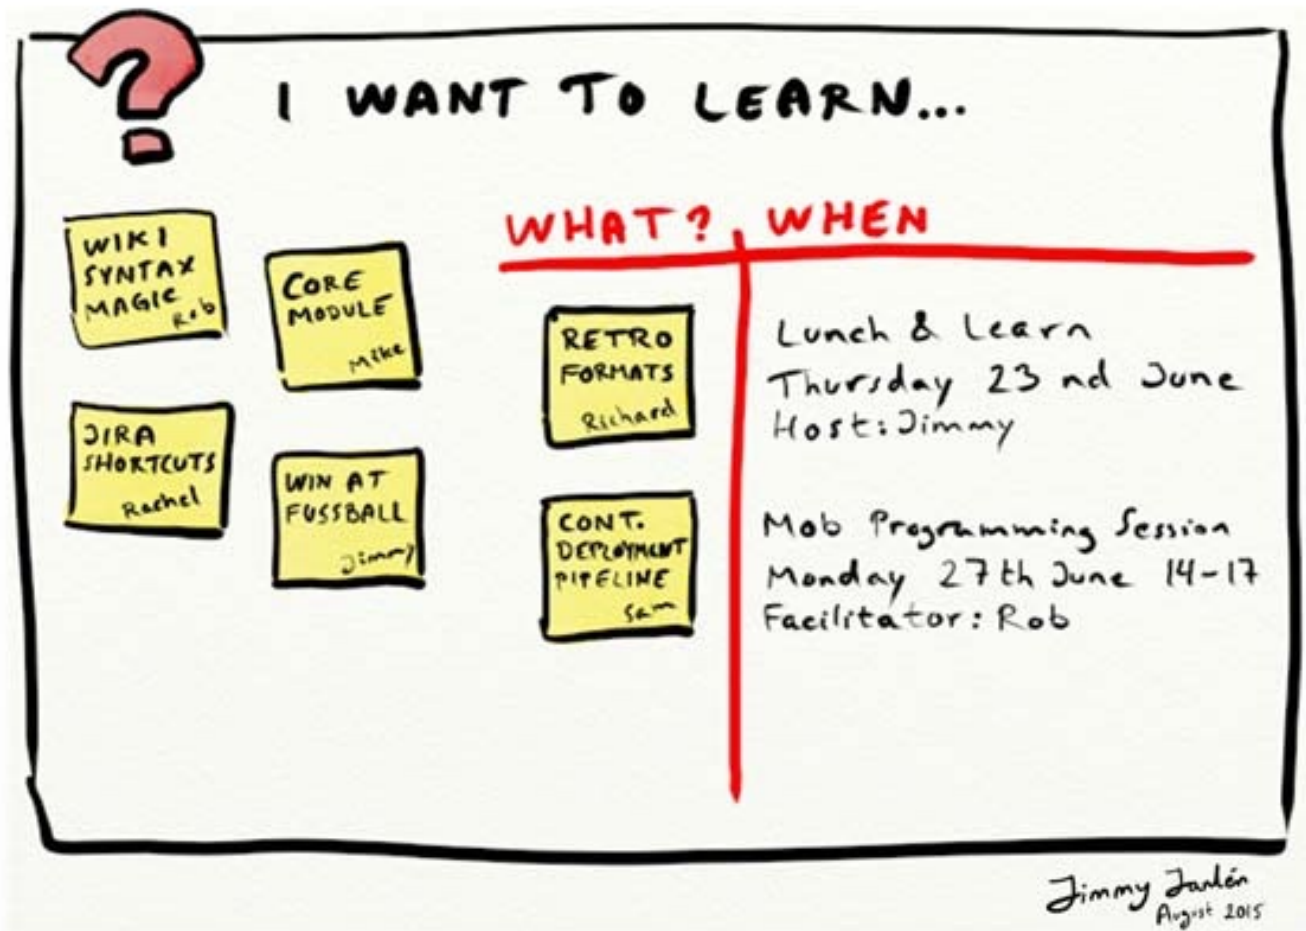 ?
I WANT TO LEARN...
WIKI
SYNTAX
MAGIC
Rob
CORE
MODULE
Mike
JIRA
SHORTCUTS
Rachel
WIN AT
FUSSBALL
Jimmy
WHAT? WHEN
RETRO
FORMATS
Richard
Lunch & Learn
Thursday 23 nd June
Host: Jimmy
CONT.
DEPLOYMENT
PIPELINE
Sam
Mob Programming Session
Monday 27th June 14-17
Facilitator: Rob
Jimmy Janlén
August 2015